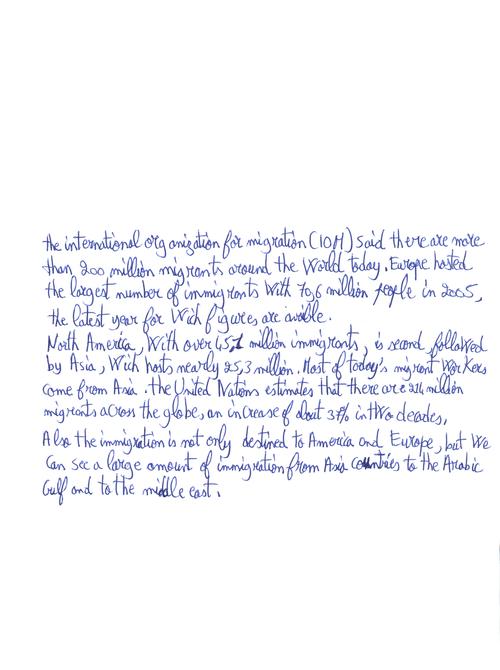 the international organization for migration (IOM) said there are more
than 200 million migrants around the World today. Europe hosted
the largest number of immigrants With 70,6 million people in 2005,
the latest year for Wich figures are avaible.
North America, With over 45,1 million immigrants, is second followed
by Asia, Wich hosts nearly 25,3 million. Most of today's migrant Workers
come from Asia. the United Nations estimates that there are 214 million
migrants across the globe, an increase of about 37% in tWo decades,
Also the immigration is not only destined to America and Europe, but We
Can see a large amount of immigration from Asia countries to the Arabic
Gulf and to the middle east.